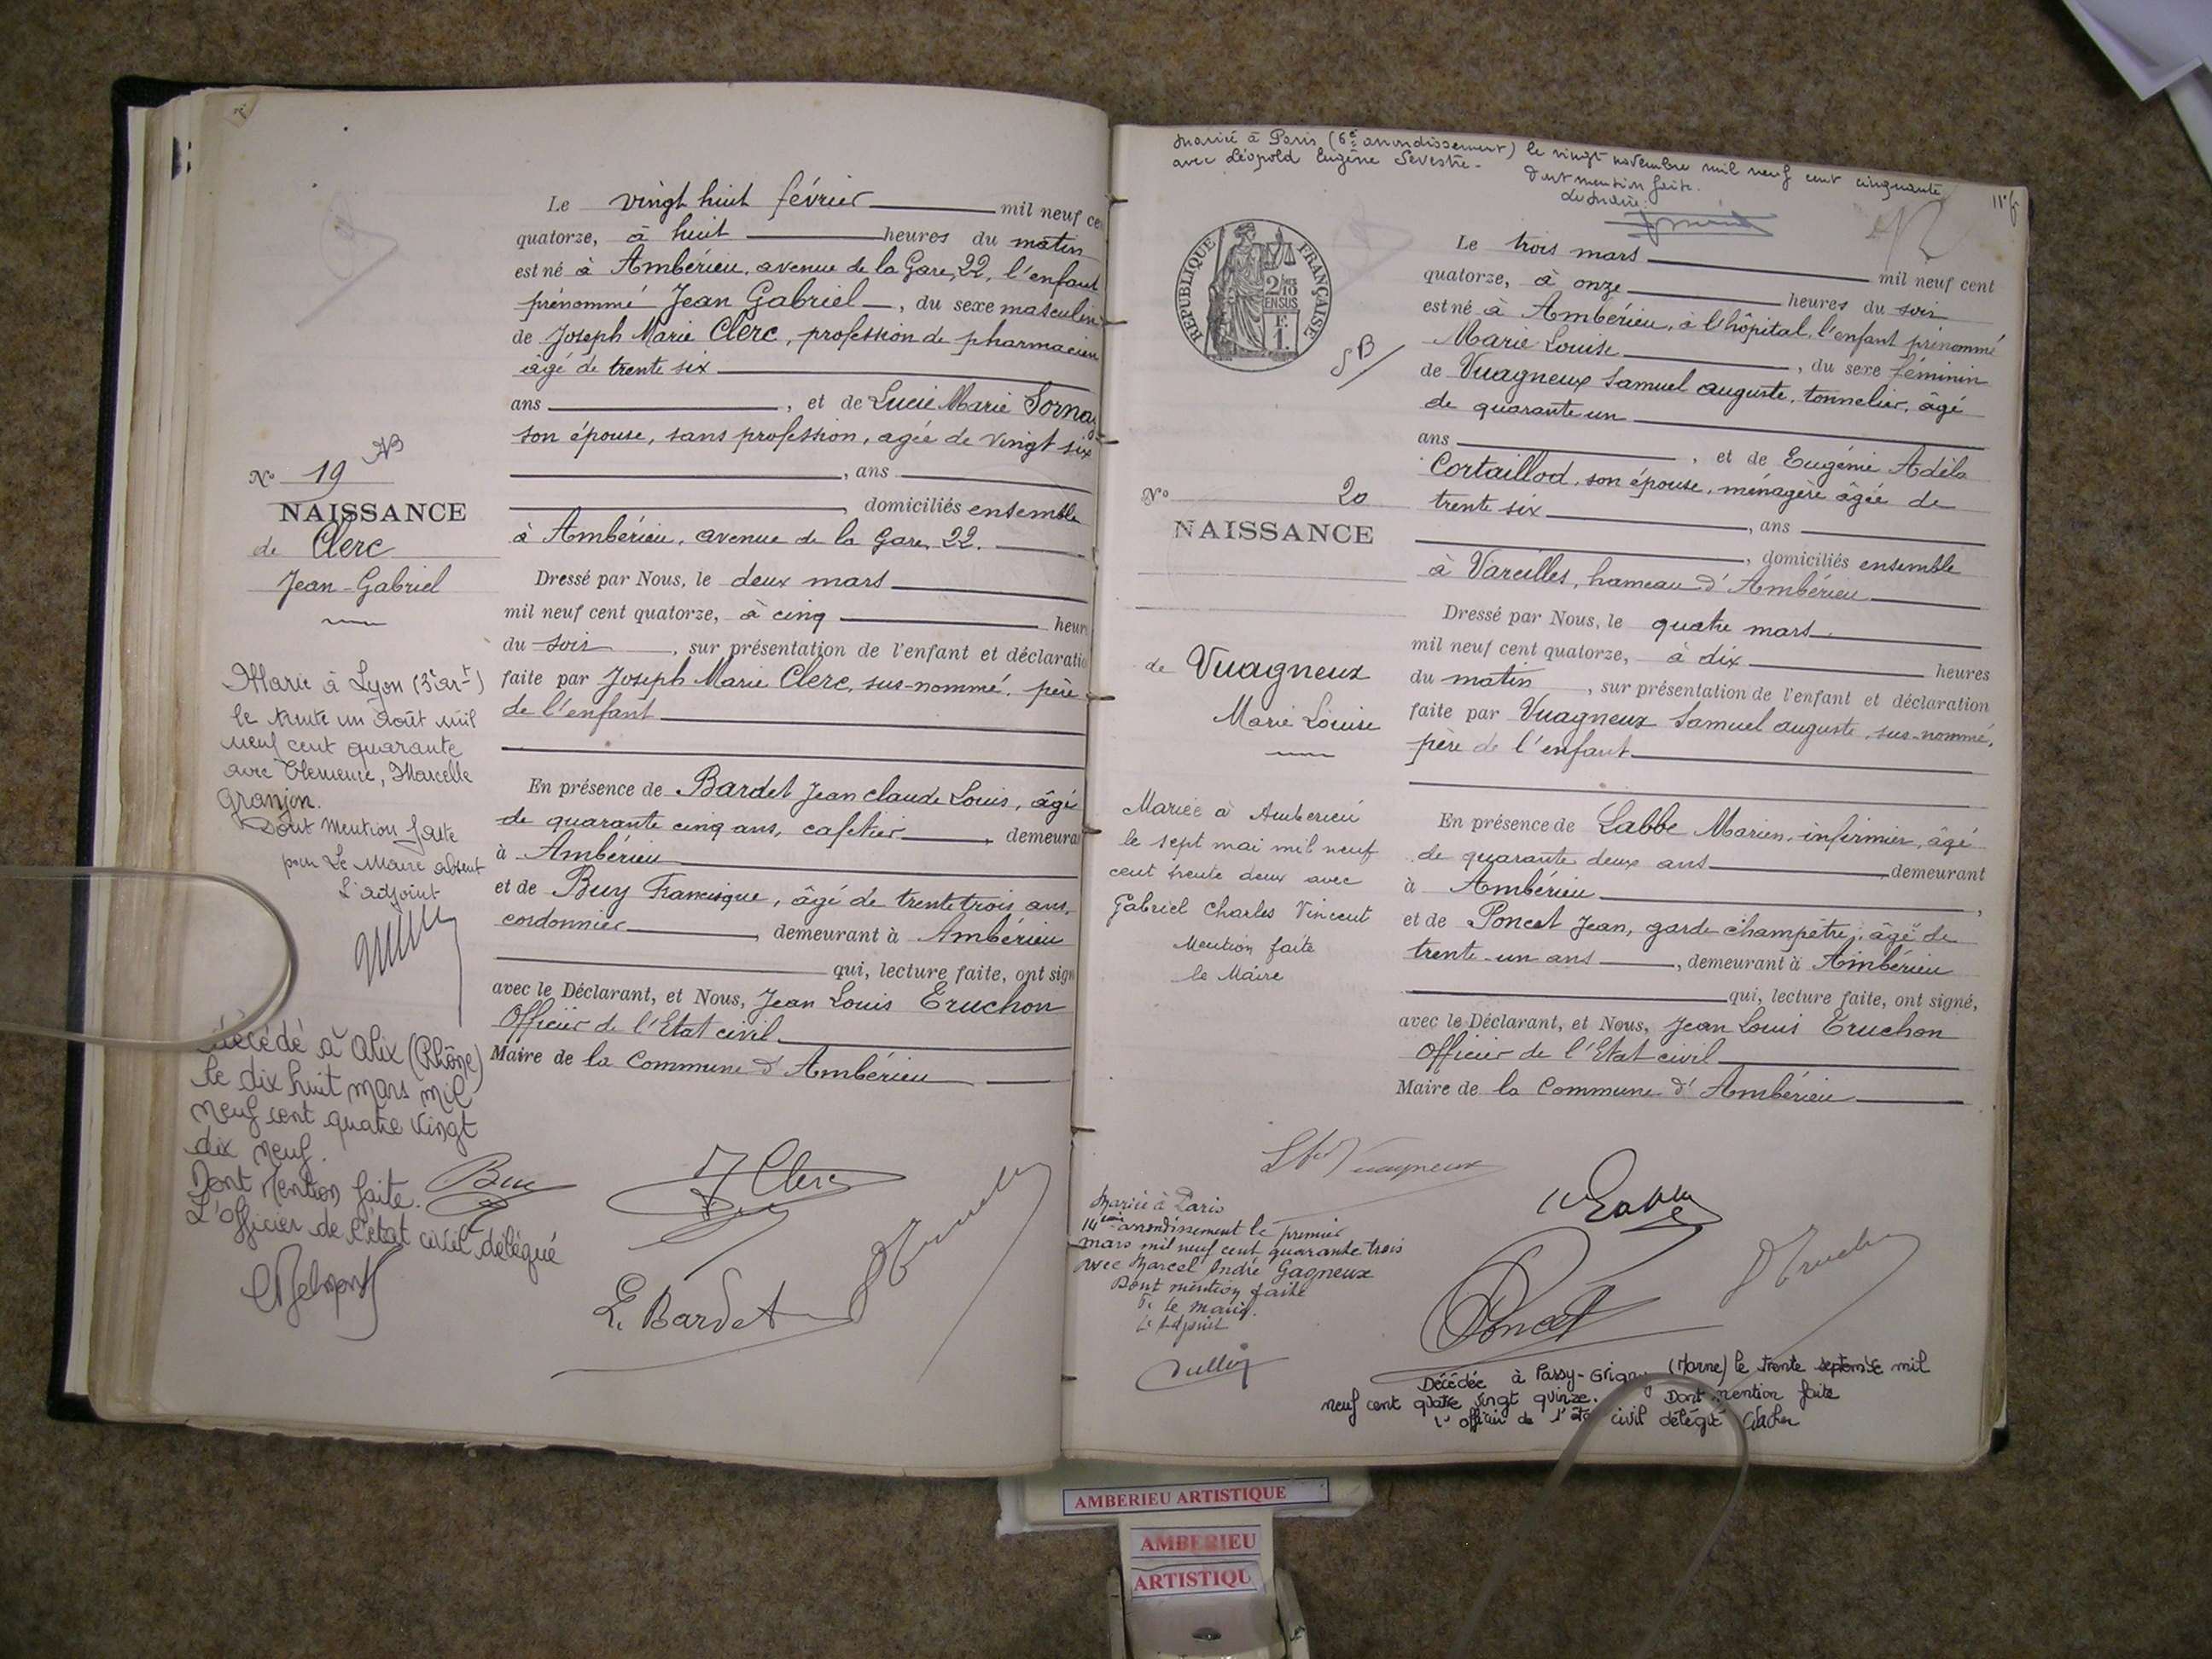 Le vingt huit février mil neuf ce
quatorze, à huit heures du matin
est né à Ambérieu, avenue de la Gare, 22, l'enfant
prénommé Jean Gabriel, du sexe masculin
de Joseph Marie Clerc, profession de pharmacien
âgé de trente six
ans, et de Lucie Marie Sornay
son épouse, sans profession, agée de vingt six
, ans
, domiciliés ensemble
à Ambérieu, avenue de la Gare, 22.
Dressé par Nous, le deux mars
mil neuf cent quatorze, à cinq heur
du soir, sur présentation de l'enfant et déclaratio
faite par Joseph Marie Clerc, sus-nommé, père
de l'enfant
En présence de Bardet Jean Claude Louis, âgé
de quarante cinq ans, cafetier, demeura
à Ambérieu
et de Buy Francisque, âgé de trente trois ans,
cordonnier, demeurant à Ambérieu
qui, lecture faite, ont sign
avec le Déclarant, et Nous, Jean Louis Truchon
Officier de l'Etat civil
Maire de la Commune d'Ambérieu
No 19
NAISSANCE
de Clerc
Jean-Gabriel
Marié à Lyon (3e arrt)
le trente un août mil
neuf cent quarante
avec Clémence, Marcelle
Granjon.
Dont Mention faite
pour Le Maire absent
L'adjoint
Décédé à Alix (Rhône)
le dix huit mars mil
neuf cent quatre vingt
dix neuf.
Dont Mention faite.
L'officier de l'état civil délégué
Buy
J Clerc
L. Bardet
Truchon
Mariée à Paris (6e arrondissement) le vingt novembre mil neuf cent cinquante
avec Léopold Eugène Sevestre. Dont mention faite.
Le Maire.
RÉPUBLIQUE FRANÇAISE
2/10
EN SUS
F.
1.
Le trois mars mil neuf cent
quatorze, à onze heures du soir
est né à Ambérieu, à l'hôpital, l'enfant prénommé
Marie Louise, du sexe féminin
de Vuagneux Samuel auguste, tonnelier, âgé
de quarante un
ans, et de Eugénie Adèle
Cortaillod, son épouse, ménagère âgée de
trente six, ans
, domiciliés ensemble
à Vareilles, hameau d'Ambérieu
Dressé par Nous, le quatre mars
mil neuf cent quatorze, à dix heures
du matin, sur présentation de l'enfant et déclaration
faite par Vuagneux Samuel auguste, sus-nommé,
père de l'enfant
En présence de Labbe Marien, infirmier, âgé
de quarante deux ans demeurant
à Ambérieu,
et de Poncet Jean, garde champêtre, âgé de
trente-un ans, demeurant à Ambérieu
qui, lecture faite, ont signé,
avec le Déclarant, et Nous, Jean Louis Truchon
Officier de l'Etat civil
Maire de la Commune d'Ambérieu
No 20
NAISSANCE
de Vuagneux
Marie Louise
Mariée à Ambérieu
le sept mai mil neuf
cent trente deux avec
Gabriel Charles Vincent
Mention faite
le Maire
Vuagneux
Labbe
Poncet
Truchon
Mariée à Paris
14eme arrondissement le premier
mars mil neuf cent quarante trois
avec Marcel André Gagneux
Dont mention faite
Le Maire.
L'adjoint
Décédée à Passy-Grigny (Marne) le trente septembre mil
neuf cent quatre vingt quinze. Dont mention faite
L'officier de l'état civil délégué
AMBERIEU ARTISTIQUE
AMBERIEU
ARTISTIQU